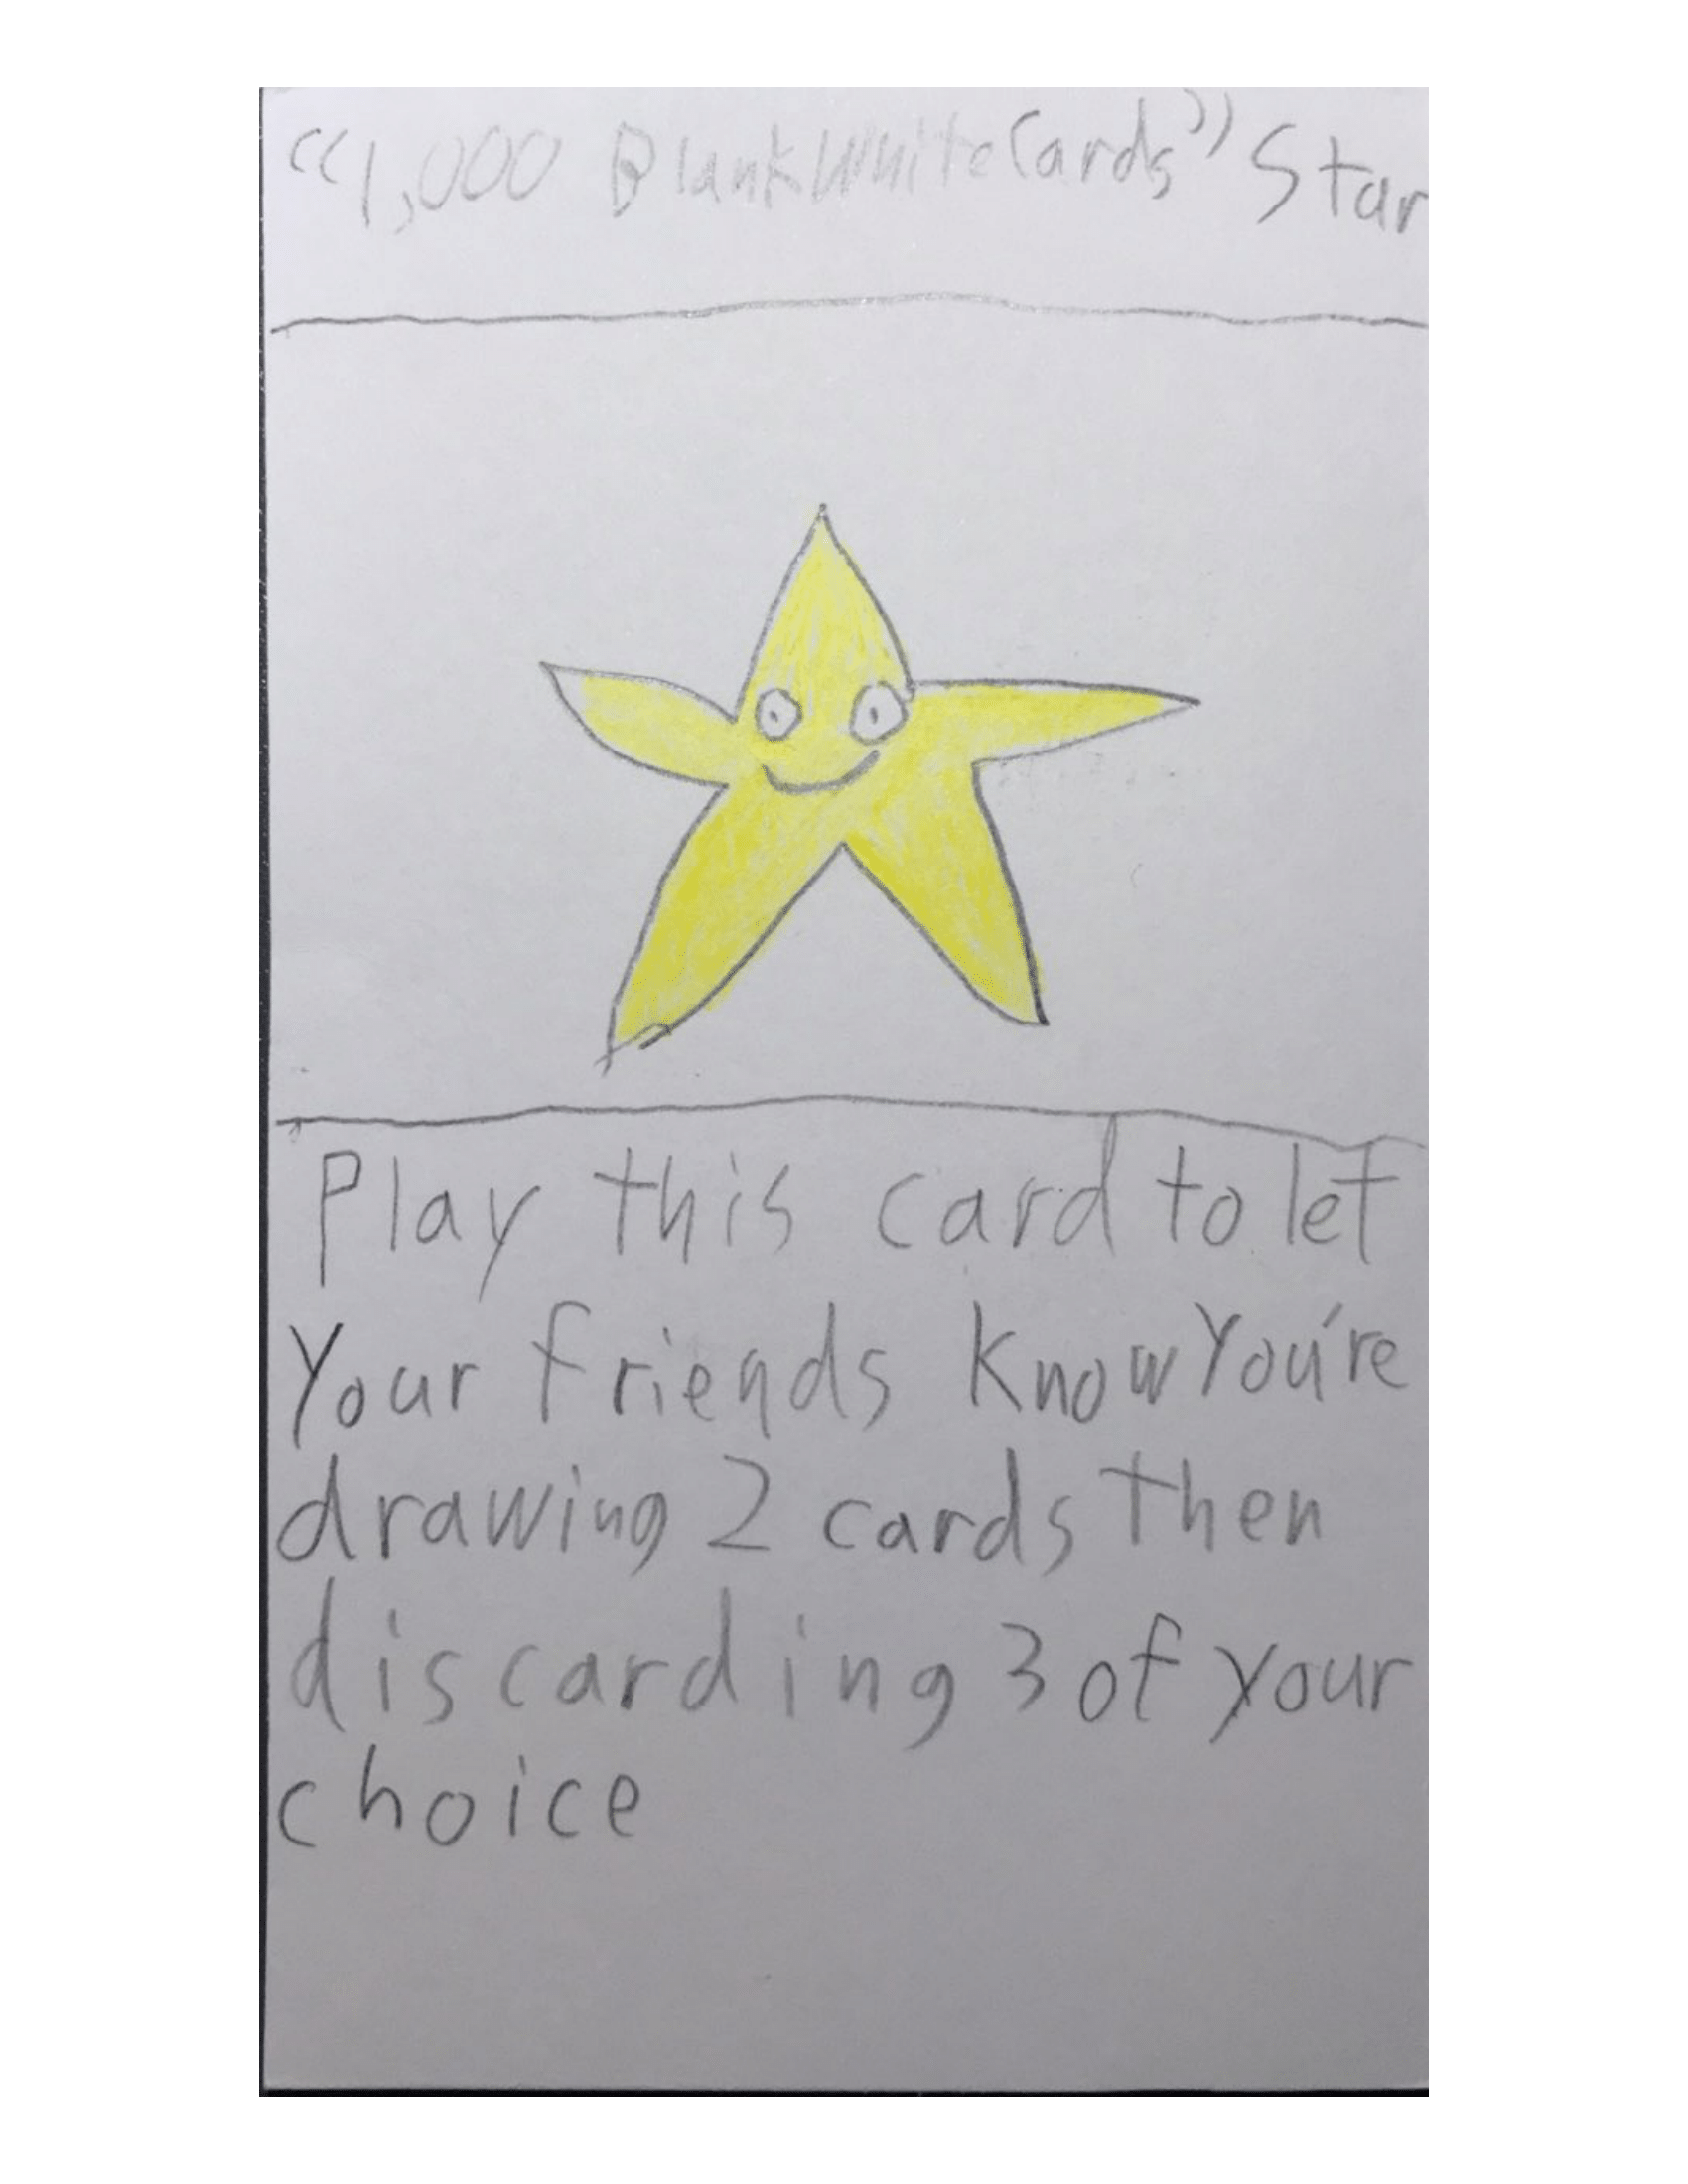 "1,000 Blank White Cards" Star
Play this card to let
Your friends know You're
drawing 2 cards then
discarding 3 of your
choice